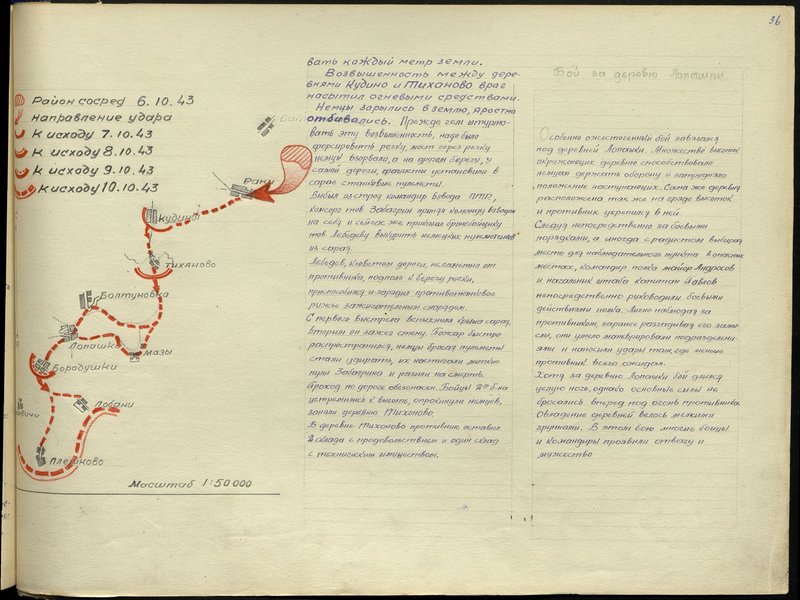 36
Район сосред 6.10.43
Направление удара
К исходу 7.10.43
К исходу 8.10.43
К исходу 9.10.43
К исходу 10.10.43
Раки
Кудино
Тиханово
Болтуновка
Лопашки
Мазы
Бородушки
Лобани
Плешково
Масштаб 1:50 000
вать каждый метр земли.
Возвышенность между дере-
внями Кудино и Тиханово враг
насытил огневыми средствами.
Немцы зарылись в землю, яростно
отбивались. Прежде чем штурмо-
вать эту возвышенность, надо было
форсировать речку, мост через речку
немцы взорвали, а на другом берегу, у
самой дороги, фашисты установили в
сарае станковые пулеметы.
Выбыл из строя командир взвода ПТР,
комсорг тов Забагрин принял команду взводом
на себя и сейчас же приказал бронебойщику
тов Лебедеву выкурить немецких пулеметчиков
из сарая.
Лебедев, кюветом дороги, незаметно от
противника, подполз к берегу речки,
приспособился и зарядил противотанковое
ружье зажигательным снарядом.
С первого выстрела вспыхнула крыша сарая,
вторым он зажег стену. Пожар быстро
распространился, немцы бросая пулеметы
стали удирать, их настигали меткие
пули Забагрина и разили на смерть.
Проход по дороге обеспечен. Бойцы 2го б-на
устремились к высоте, опрокинули немцев,
заняли деревню Тиханово.
В деревне Тиханово противник оставил
2 склада с продовольствием и один склад
с техническим имуществом.
Бой за деревню Лопашки.
Особенно ожесточенный бой завязался
под деревней Лопашки. Множество высоток
окружающих деревню способствовало
немцам держать оборону и затрудняло
положение наступающих. Сама же деревня
расположена так же на гряде высоток
и противник укрепился в ней.
Следуя непосредственно за боевыми
порядками, а иногда с радистом выбирая
место для наблюдательного пункта в опасных
местах, командир полка майор Андросов
и начальник штаба капитан Павлов
непосредственно руководили боевыми
действиями полка. Лично наблюдая за
противником, заранее разгадывая его замы-
слы, они умело маневрировали подразделени-
ями и наносили удары там, где меньше
противник всего ожидал.
Хотя за деревню Лопашки бой длился
целую ночь, однако основные силы не
бросались вперед под огонь противника.
Овладение деревней велось мелкими
группами. В этом бою многие бойцы
и командиры проявили отвагу и
мужество